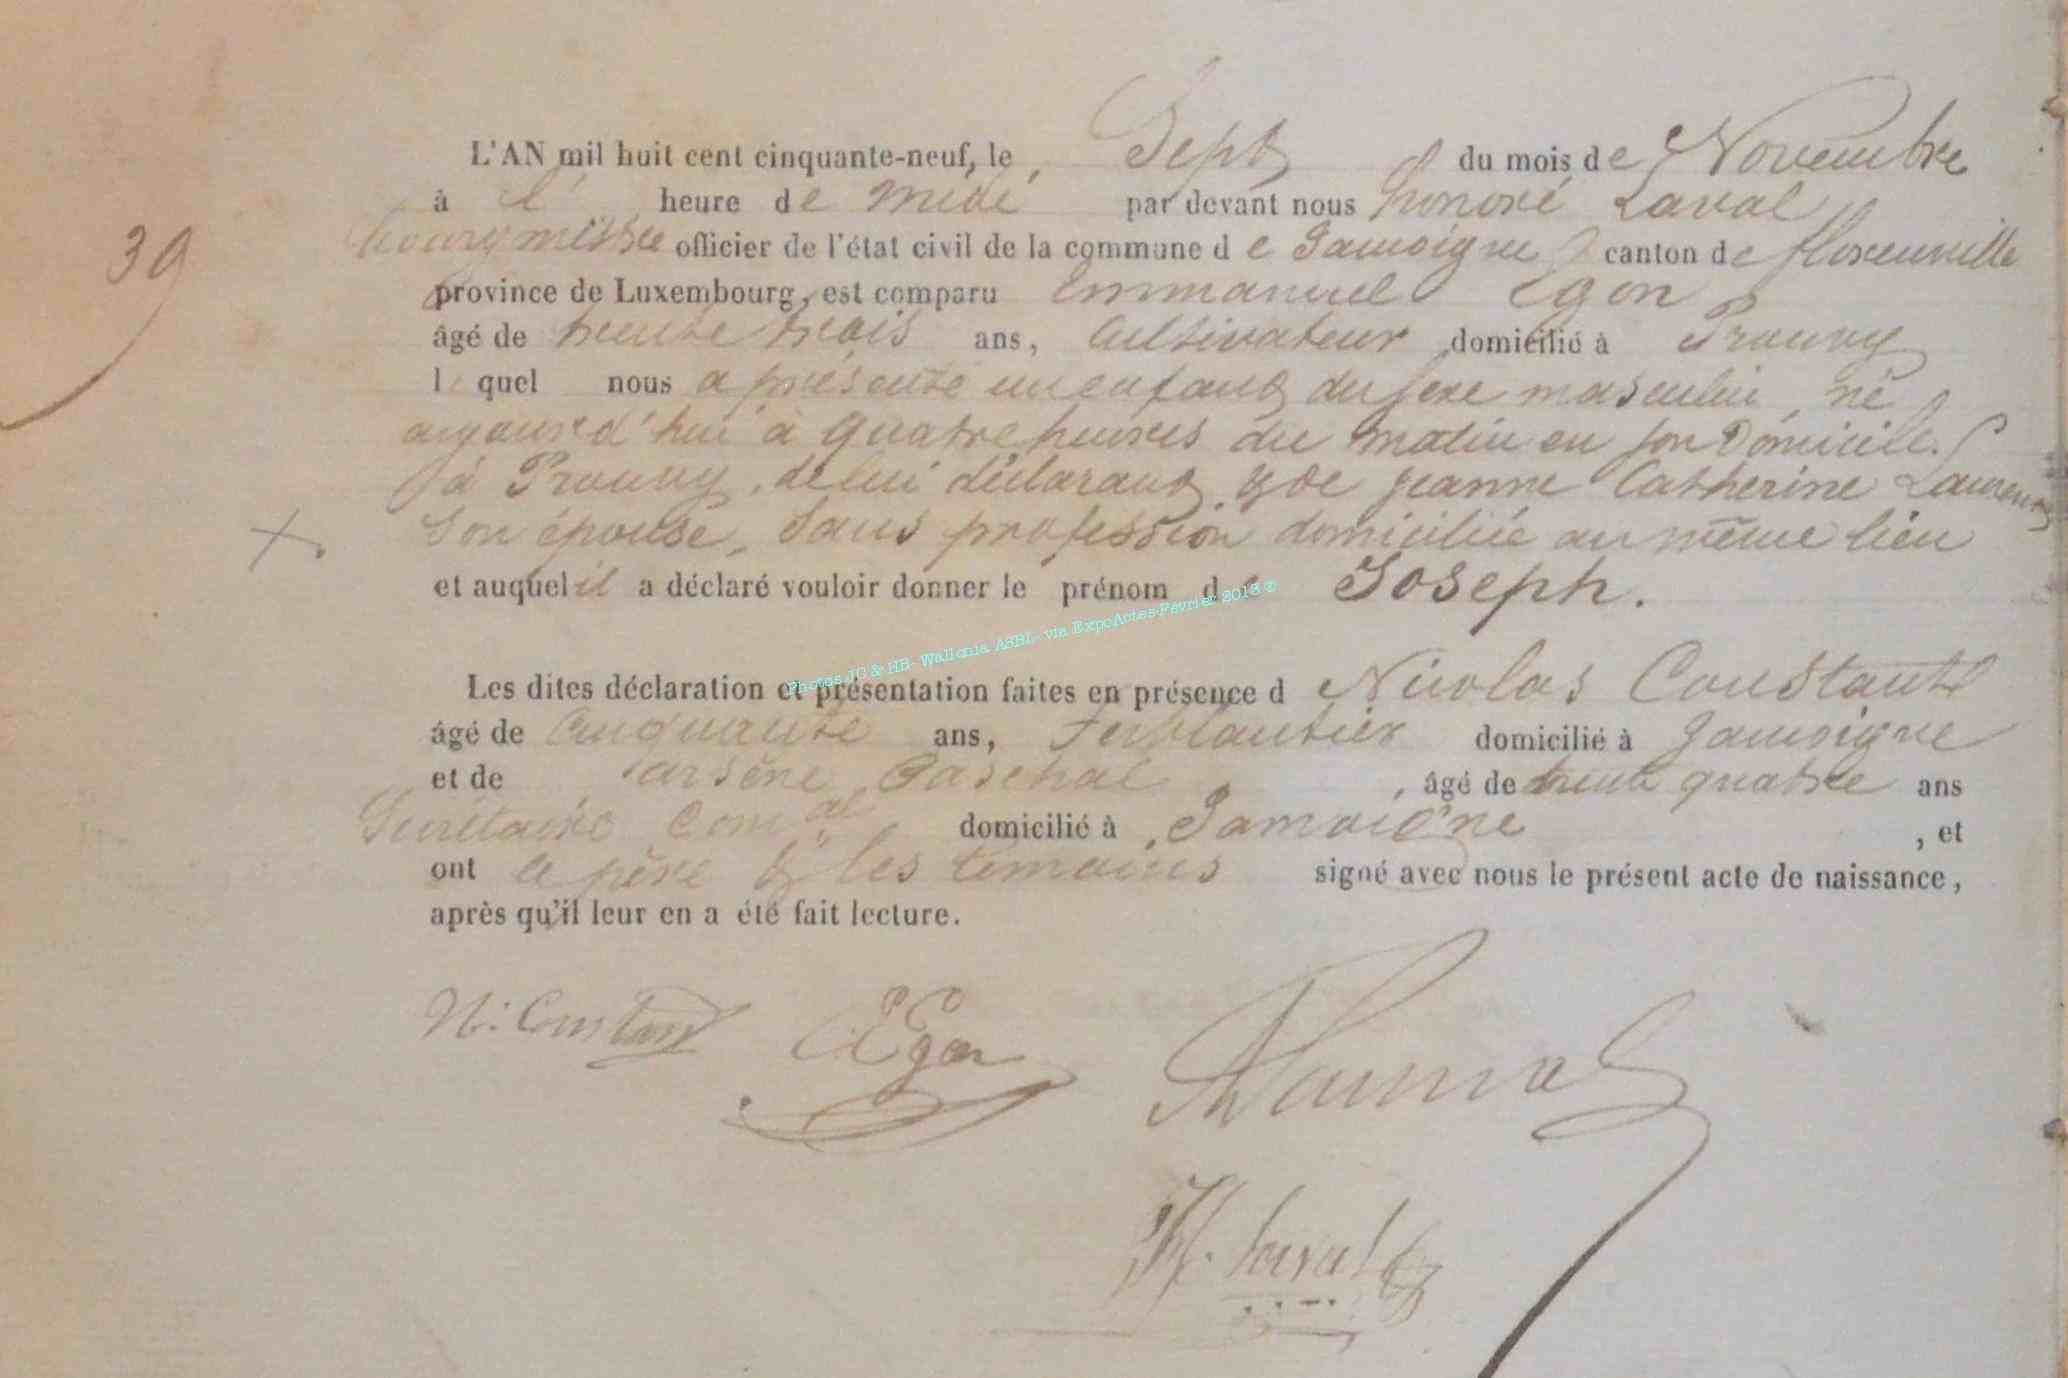 L'AN mil huit cent cinquante-neuf, le Sept du mois de Novembre
à l' heure de midi par devant nous honoré Laval
39
bourgmestre officier de l'état civil de la commune de Jamoigne canton de florenville
province de Luxembourg, est comparu Emmanuel Egon
âgé de trente trois ans, Cultivateur domicilié à Prouvy
lequel nous a présenté un enfant du sexe masculin, né
aujourd'hui à quatre heures du matin en son Domicile
à Prouvy, de lui déclarant & de jeanne Catherine Laurent
Son épouse, Sans profession domiciliée au même lieu
et auquel il a déclaré vouloir donner le prénom de Joseph.
Photos JC & HB- Wallonia ASBL- via ExpoActes-Février 2018 ©
Les dites déclaration et présentation faites en présence d Nicolas Constant
âgé de Cinquante ans, Ferblantier domicilié à Jamoigne
et de arsène Paschal, âgé de trente quatre ans
Secrétaire Com.al domicilié à Jamoigne, et
ont le père & les témoins signé avec nous le présent acte de naissance,
après qu'il leur en a été fait lecture.
N. Constant E Egon
H. Laval